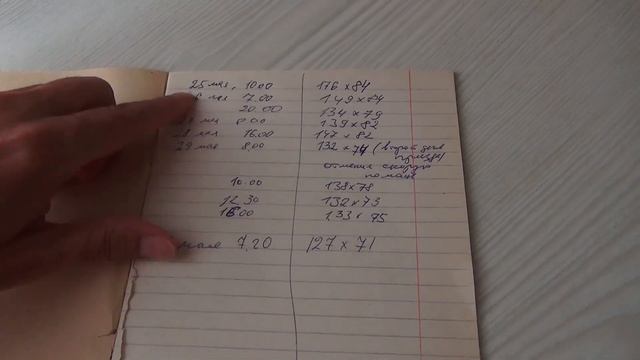 25 мая, 10.00 176 x 84
мая 7.00 149 x 84
20.00 134 x 79
8.00 139 x 82
28 мая 16.00 147 x 82
29 мая 8.00 132 x 74 (второй день
10.00 138 x 78
12.30 132 x 75
16.00 133 x 75
мая 7.20 127 x 71